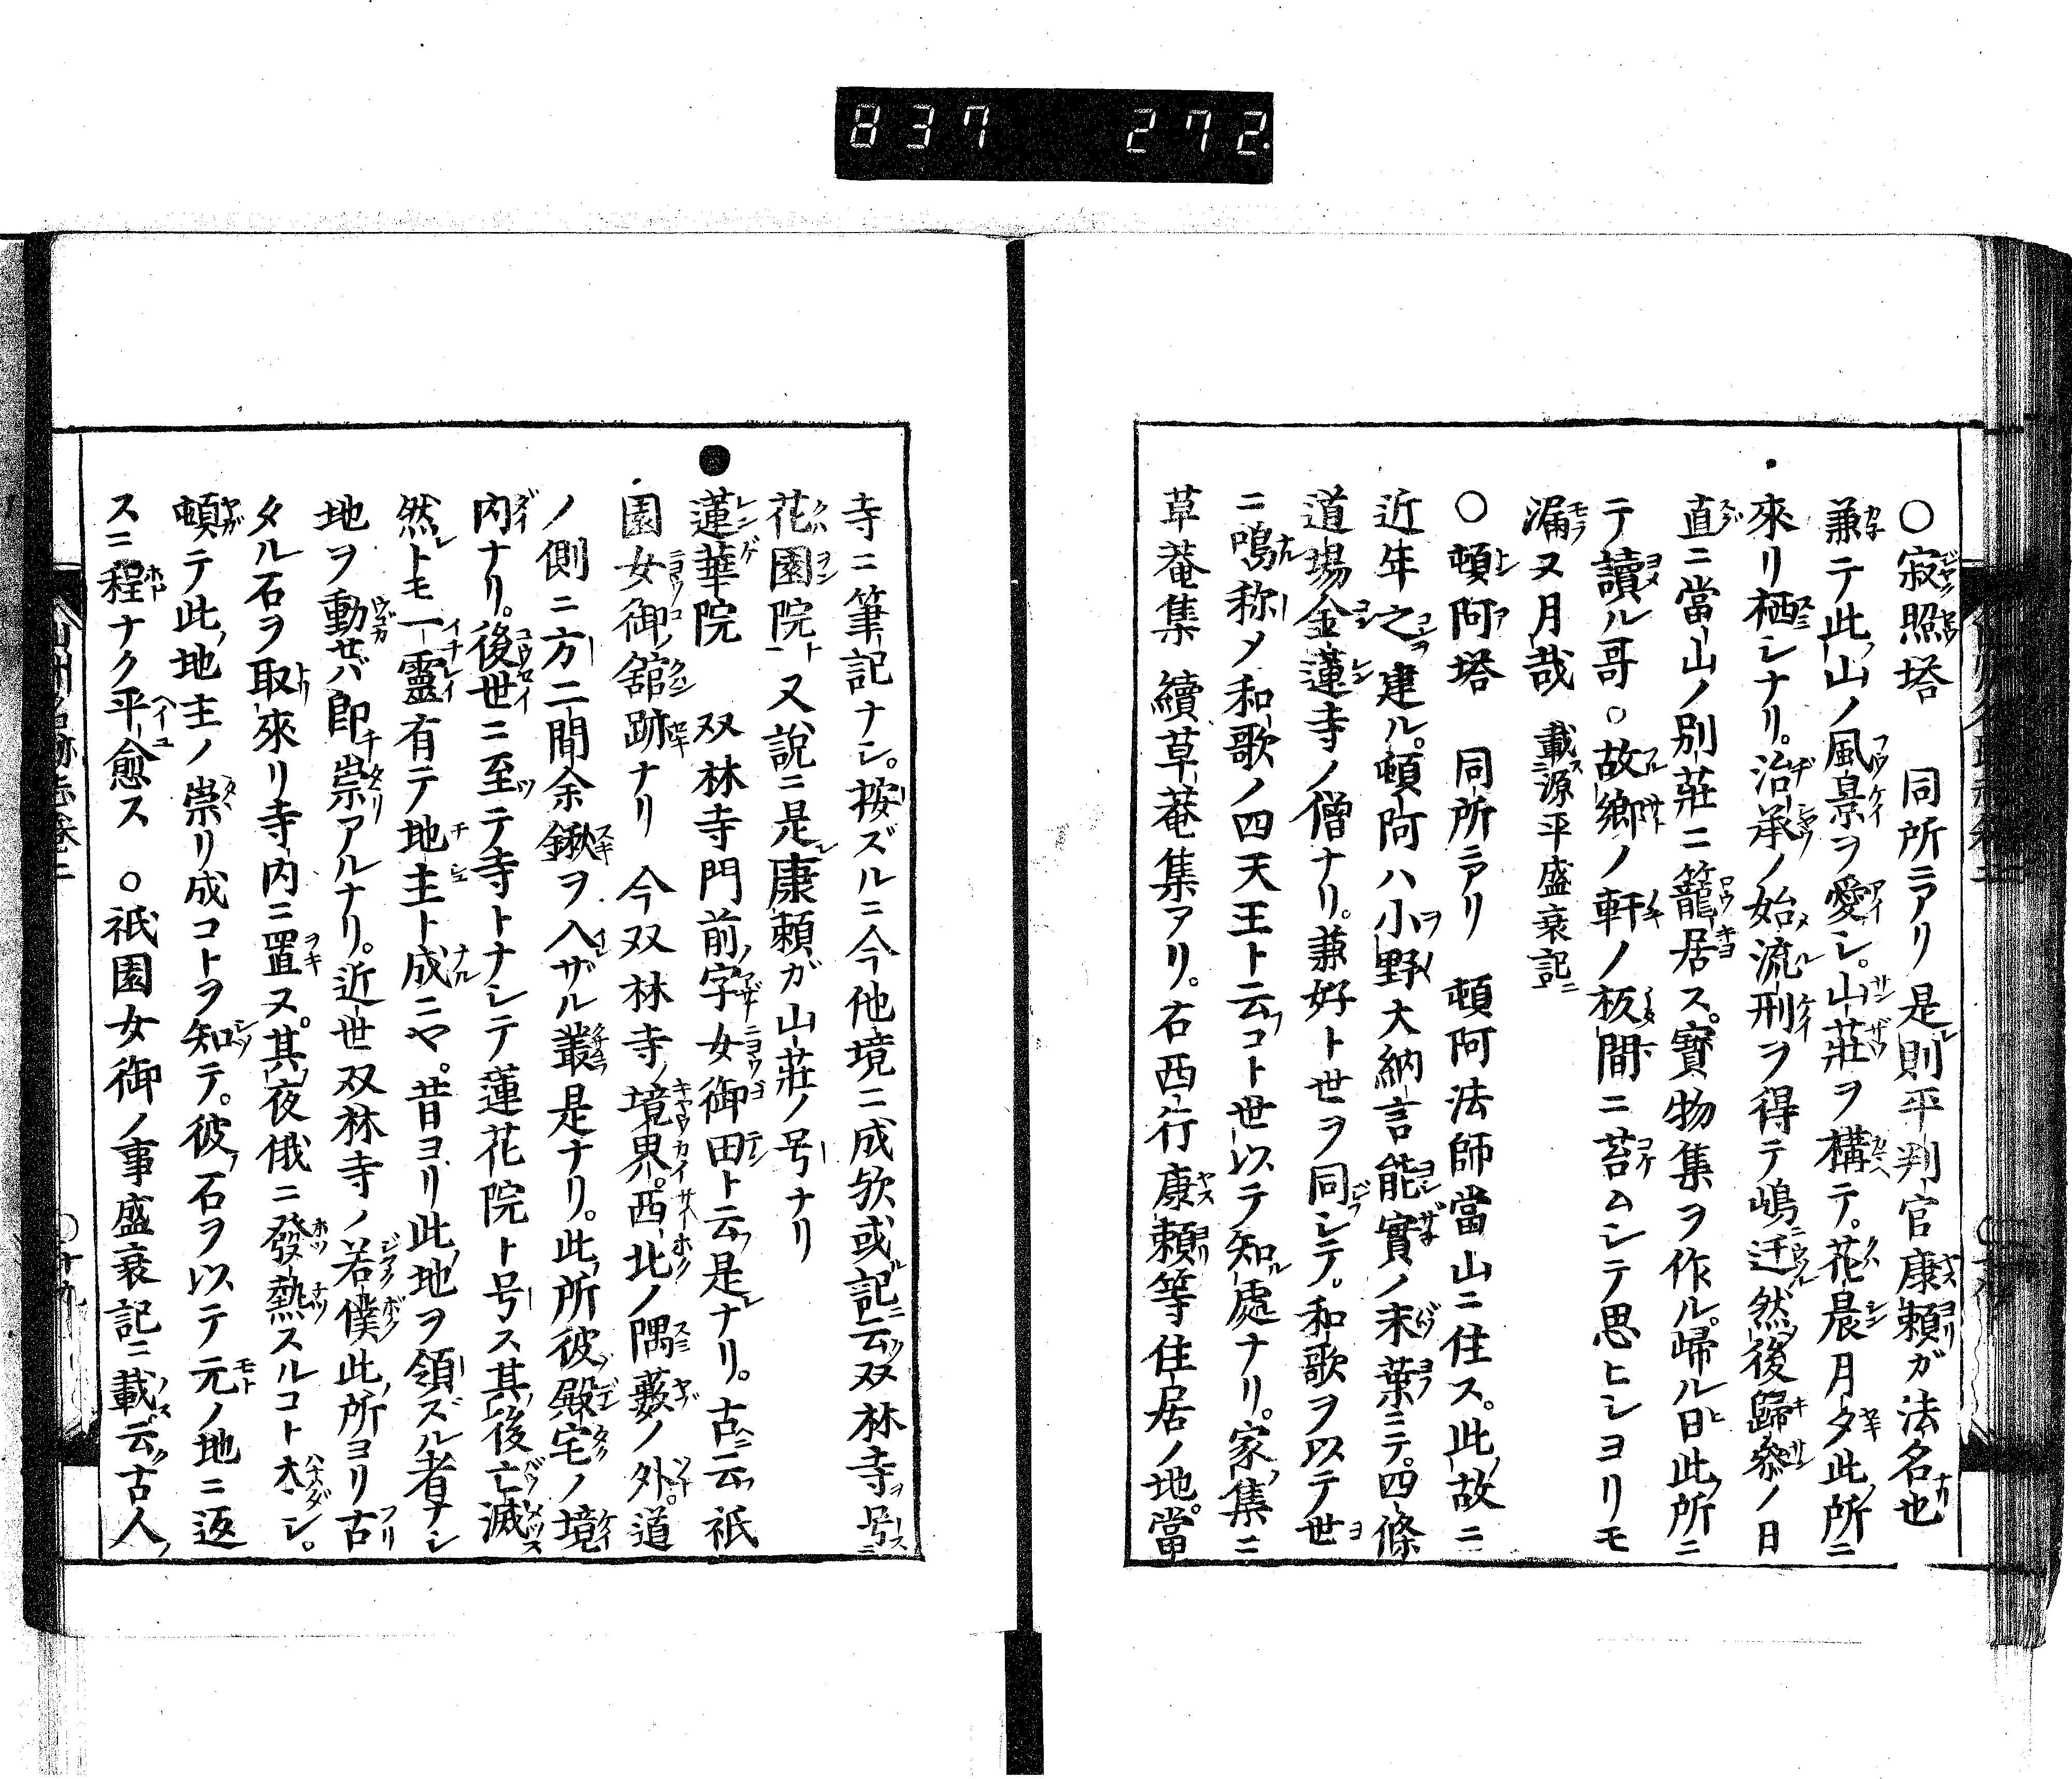 837 272
○寂照塔 同所ニアリ 是則平判官康頼ガ法名也
兼テ此山ノ風景ヲ愛シ。山莊ヲ構テ。花晨月夕此所ニ
來リ栖シナリ。治承ノ始流刑ヲ得テ嶋ニ迁ル然後歸參ノ日
直ニ當山ノ別莊ニ籠居ス。寶物集ヲ作ル。歸ル日此所ニ
テ讀ル哥。○故郷ノ軒ノ板間ニ苔ムシテ思ヒシヨリモ
漏ヌ月哉 載源平盛衰記ニ
○頓阿塔 同所ニアリ 頓阿法師當山ニ住ス。此故ニ
近年之建ル。頓阿ハ小野大納言能實ノ末葉ニテ。四條
道場金蓮寺ノ僧ナリ。兼好ト世ヲ同シテ。和歌ヲ以テ世
ニ鳴称メ和歌ノ四天王ト云コト世以テ知處ナリ。家集ニ
草菴集 續草菴集アリ。右西行康頼等住居ノ地。當
寺ニ筆記ナシ。按ズルニ今他境ニ成欤或記ニ云双林寺号ニ
花園院ト又說ニ是康頼ガ山莊ノ号ナリ
●蓮華院 双林寺門前字女御田ト云是ナリ。古云祇
園女御ノ舘跡ナリ 今双林寺境界。西北ノ隅藪ノ外。道
ノ側ニ方二間余鍬ヲ入ザル叢是ナリ。此所彼殿宅ノ境
内ナリ。後世ニ至テ寺トナシテ蓮花院ト号ス其後亡滅
然トモ一靈有テ地主ト成ニヤ。昔ヨリ此地ヲ領ズル者ナシ
地ヲ動セバ即チ祟アルナリ。近世双林寺ノ若僕此所ヨリ古
タル石ヲ取來リ寺内ニ置ヌ。其夜俄ニ發熱スルコト太シ。
頓テ此地主ノ祟リ成コトヲ知テ。彼石ヲ以テ元ノ地ニ返
スニ程ナク平愈ス ○祇園女御ノ事盛衰記ニ載云古人